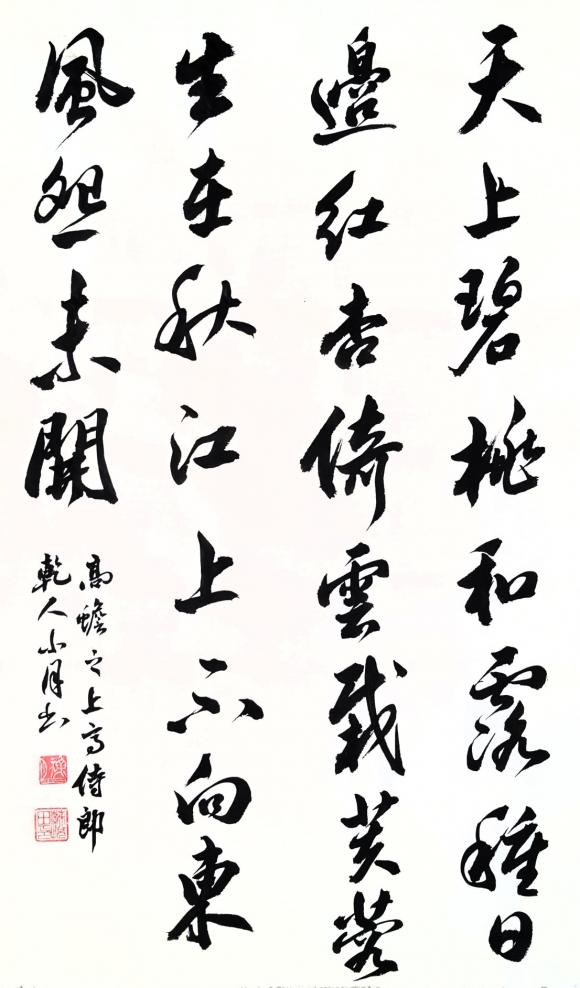 天上碧桃和露種日
邊紅杏倚雲栽芙蓉
生在秋江上不向東
風怨未開
高蟾之上高侍郎
乾人小月書